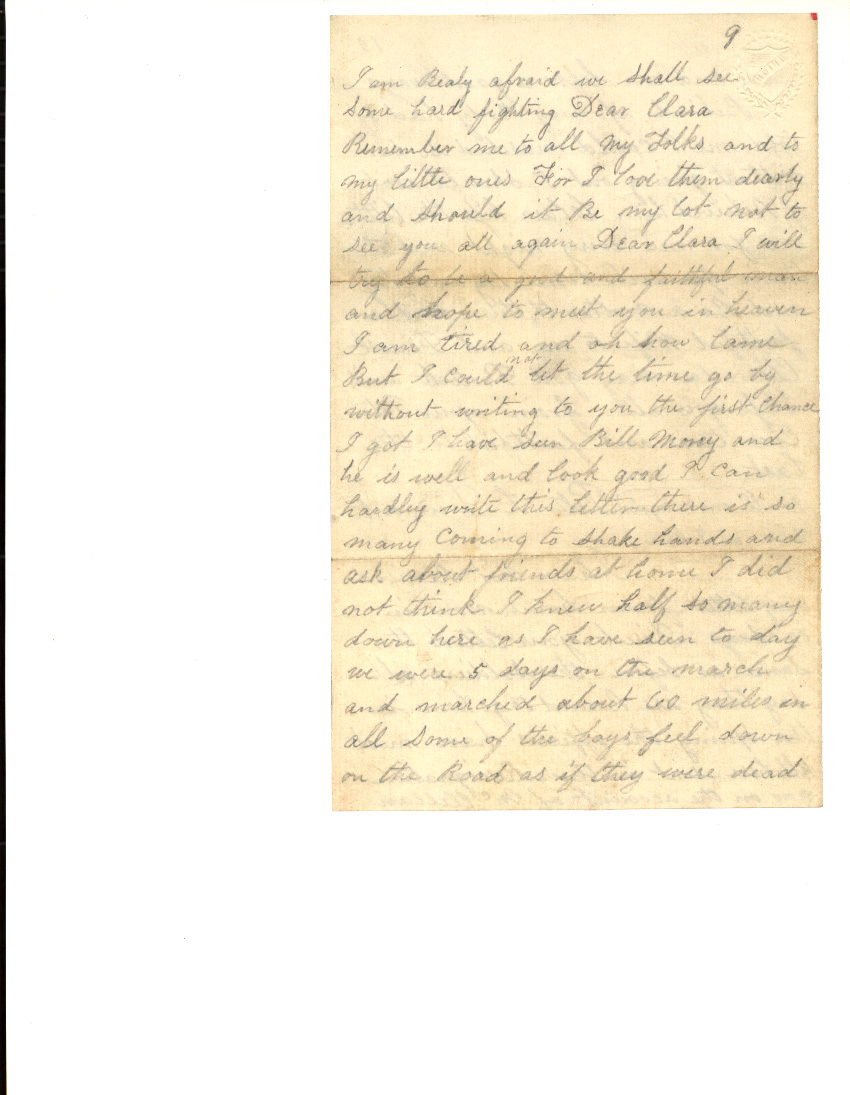 9
I am Realy afraid we shall see
some hard fighting Dear Clara
Remember me to all my Folks and to
my little ones For I love them dearly
and should it Be my lot not to
see you all again Dear Clara I will
try to be a good and faithful man
and hope to meet you in heaven
I am tired and oh how lame
But I could not let the time go by
without writing to you the first Chance
I got I have seen Bill and
he is well and look good I can
hardley write this letter there is so
many Coming to shake hands and
ask about friends at home I did
not think I knew half so many
down here as I have seen to day
we were 5 days on the march
and marched about 60 miles in
all some of the boys feel down
on the Road as if they were dead